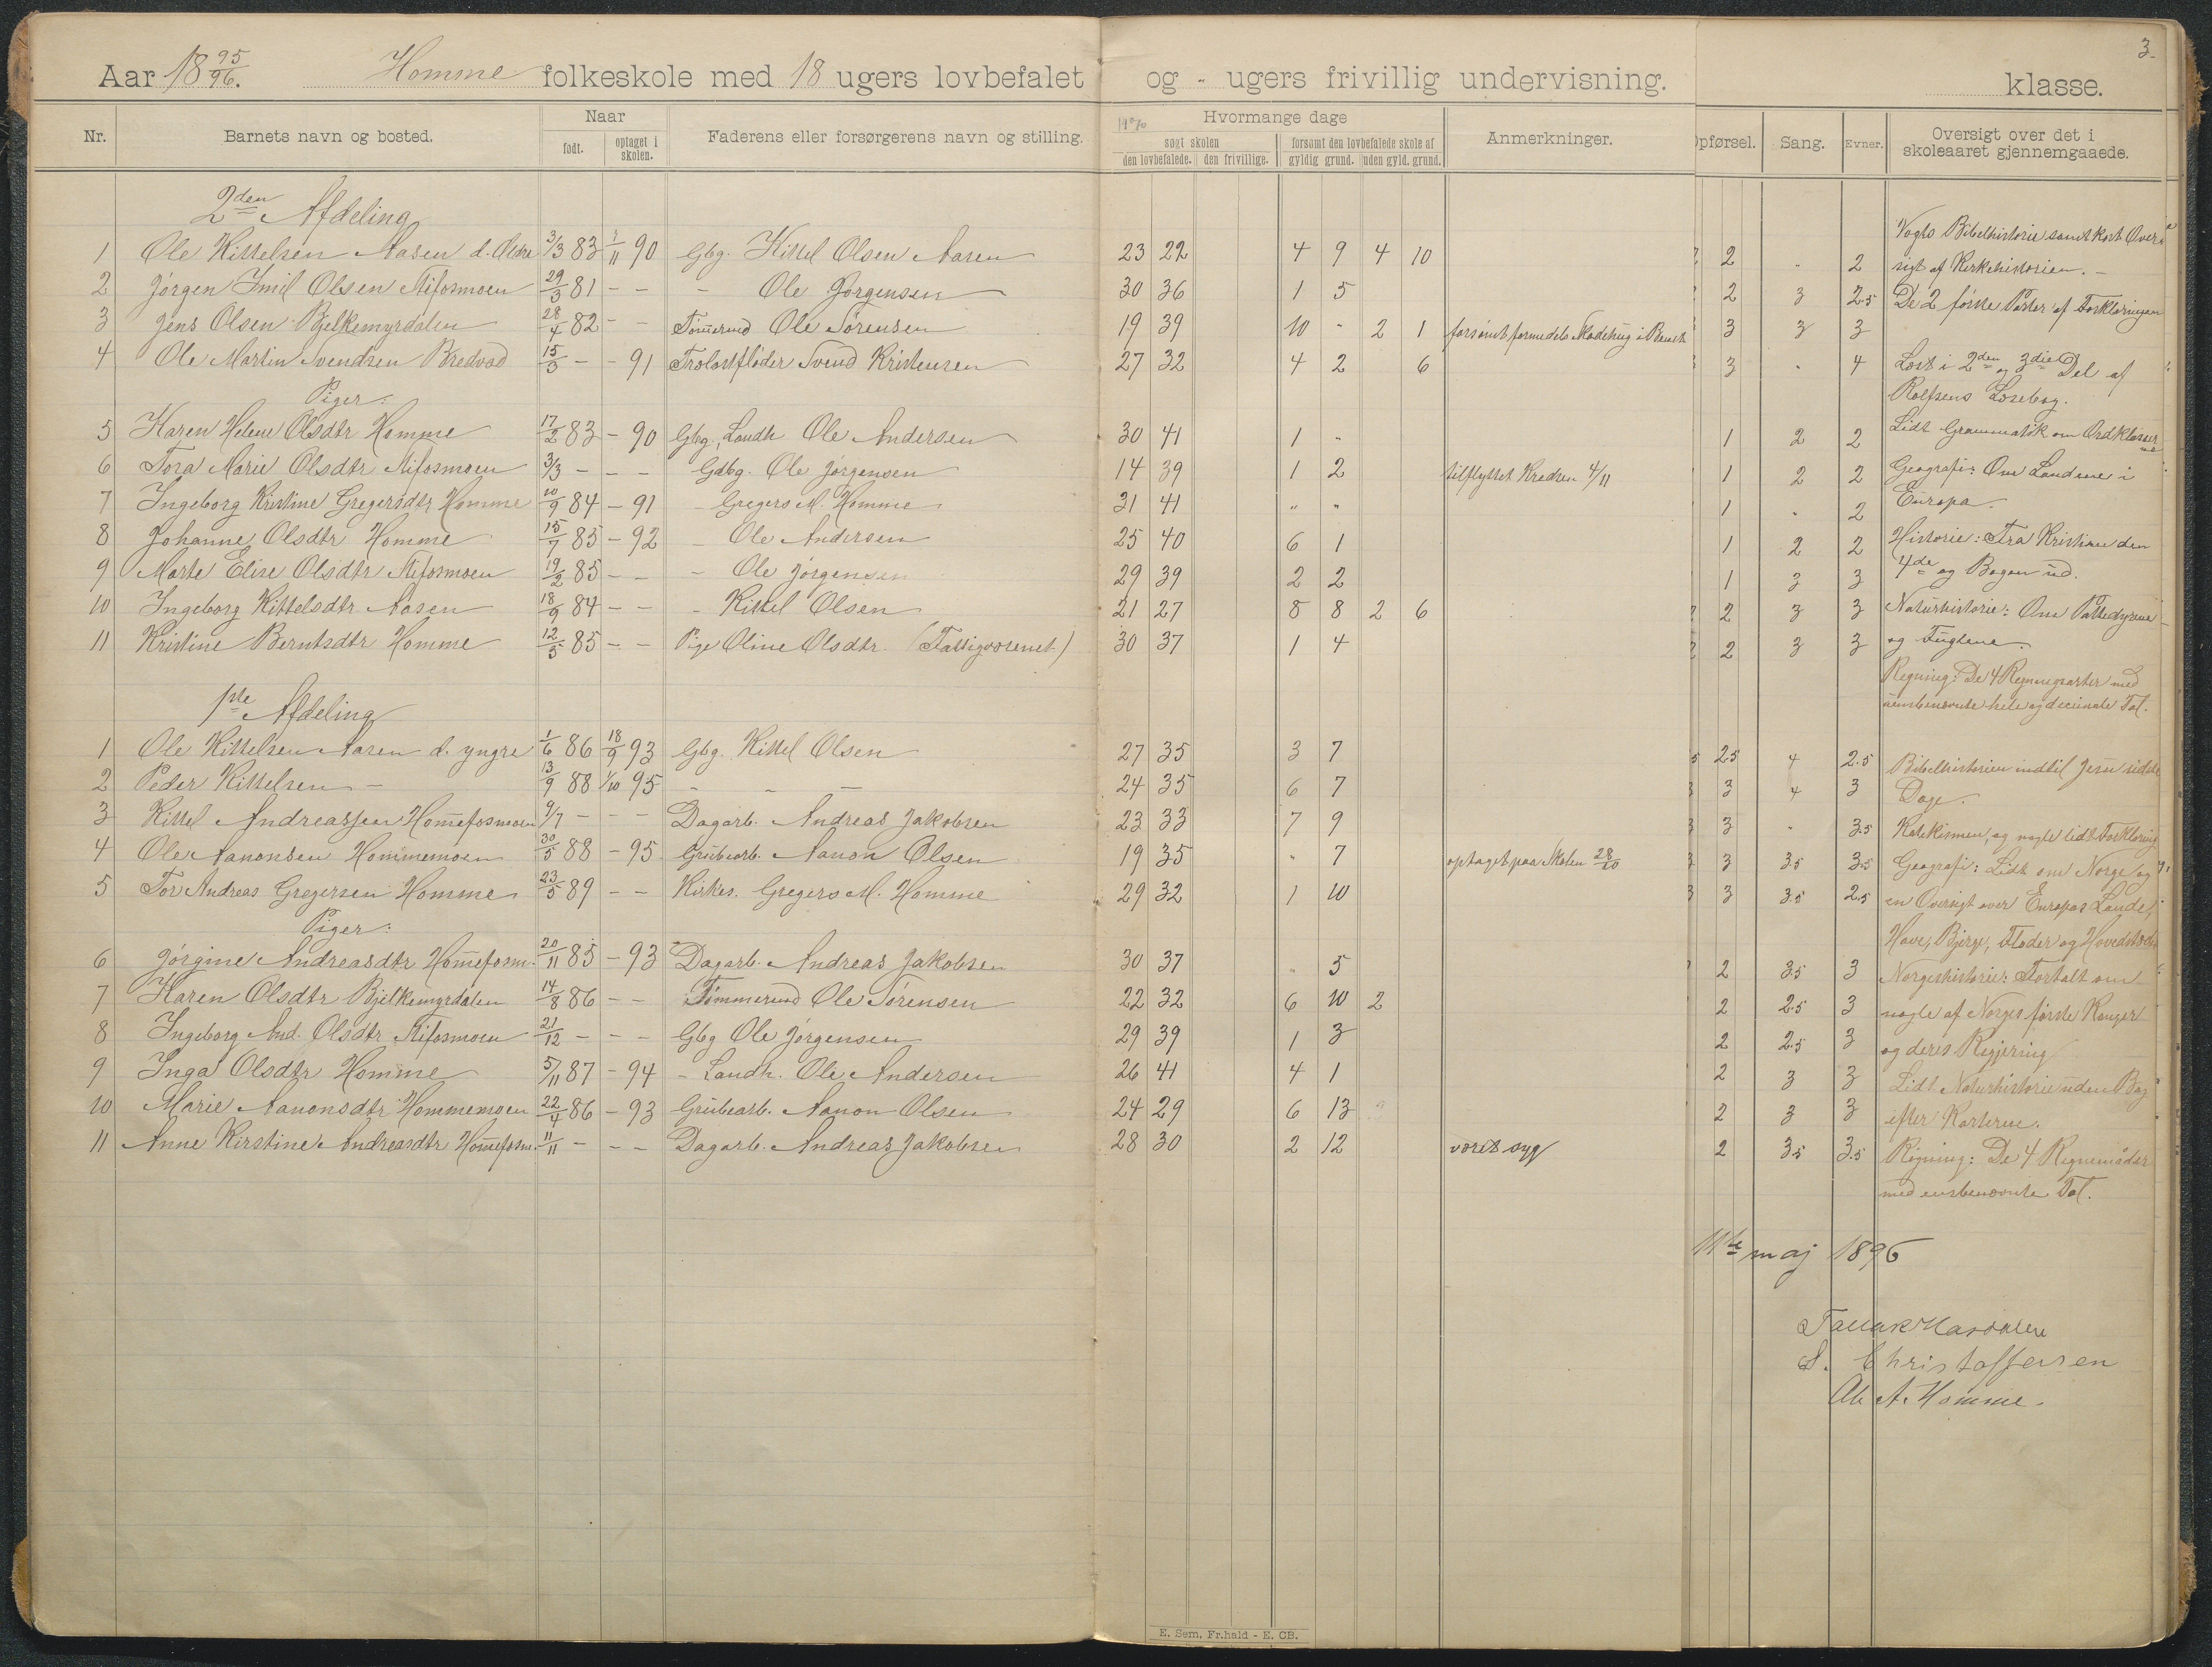 3
Aar 18 95/96. Homme folkeskole med 18 ugers lovbefalet og - ugers frivillig undervisning. klasse.
Nr. Barnets navn og bosted. Naar født. optaget i skolen. Faderens eller forsørgerens navn og stilling. Hvormange dage søgt skolen den lovbefalede. den frivillige. forsømt den lovbefalede skole af gyldig grund. uden gyld. grund. Anmerkninger. Opførsel. Sang. Evner. Oversigt over det i skoleaaret gjennemgaaede.
2den Afdeling
1 Ole Kittelsen Aasen d. Ældre 3/3 83 90 Gbg. Kittel Olsen Aasen 23 22 4 9 4 10 2 2
2 Jørgen Imil Olsen Stifosmoen 29/3 81 - - - Ole Jørgensen 30 36 1 5 2 3 2.5
3 Jens Olsen Bjelkemyrdalen 28/4 82 - - Tømmermd Ole Sørensen 19 39 10 " 2 1 3 3 3
4 Ole Martin Svendsen Bredvad 15/3 - - 91 Svend Kristensen 27 32 4 2 6 3 4
Piger:
5 Karen Helene Olsdtr Homme 17/2 83 - 90 Gbg. Landh. Ole Andersen 30 41 1 " 1 2 2
6 Tora Marie Olsdtr Stifosmoen 3/3 - - - Gdbg. Ole Jørgensen 14 39 1 2 tilflyttet Kredsen 4/11 1 2 2
7 Ingeborg Kristine Gregersdtr Homme 10/9 84 - 91 - Gregers M. Homme 31 41 " " 1 2
8 Johanne Olsdtr Homme 15/7 85 - 92 - Ole Andersen 25 40 6 1 1 2 2
9 Marte Elise Olsdtr Stifosmoen 19/2 85 - - - Ole Jørgensen 29 39 2 2 1 3 3
10 Ingeborg Kittelsdtr Aasen 18/9 84 - - - Kittel Olsen 21 27 8 8 2 6 2 3 3
11 Kristine Berntsdtr Homme 12/5 85 - - Pige Oline Olsdtr. (Fattigvæsenet) 30 37 1 4 2 3 3
1ste Afdeling
1 Ole Kittelsen Aasen d. yngre 1/6 86 18/9 93 Gbg. Kittel Olsen 27 35 3 7 2.5 4 2.5
2 Peder Kittelsen - 13/9 88 1/10 95 - - - 24 35 6 7 3 4 3
3 Kittel Andreassen Hommefosmoen 9/7 - - - Dagarb. Andreas Jakobsen 23 33 7 9 3 3.5
4 Ole Aanonsen Hommemoen 30/5 88 - 95 Grubearb. Aanon Olsen 19 35 " 7 optaget paa Skolen 28/10 3 3.5 3.5
5 Tor Andreas Gregersen Homme 23/5 89 - - Kirkes. Gregers M. Homme 29 32 1 10 3 3.5 2.5
Piger:
6 Jørgine Andreasdtr Hommefosm. 20/11 85 - 93 Dagarb. Andreas Jakobsen 30 37 " 5 2 3.5 3
7 Karen Olsdtr Bjelkemyrdalen 14/8 86 - - Tømmermd Ole Sørensen 22 32 6 10 2 2 2.5 3
8 Ingeborg And. Olsdtr Stifosmoen 21/12 - - - Gbg Ole Jørgensen 29 39 1 3 2 2.5 3
9 Inga Olsdtr Homme 5/11 87 - 94 - Landh. Ole Andersen 26 41 4 1 2 3 3
10 Marie Aanonsdtr Hommemoen 22/4 86 - 93 Grubearb. Aanon Olsen 24 29 6 13 2 3 3
11 Anne Kirstine Andreasdtr Hommefosm. 11/11 - - - Dagarb. Andreas Jakobsen 28 30 2 12 været syg 2 3.5 3.5
Vogts Bibelhistorie samt kort Over-
sigt af Kirkehistorien. -
De 2 første Parter af Forklaringen
Læst i 2den og 3die Del af
Rolfsens Læsebog.
Lidt Grammatik om Ordklasser
Geografi: Om Landene i
Europa.
Historie: Fra Kristian den
4de og Bogen ud.
Naturhistorie: Om Pattedyrene
og Fuglene.
Regning: De 4 Regningsarter med
uensbenævnte hele og decimale Tal.
Bibelhistorien indtil Jesu sidste
Dage.
Katekismen, og nogle lidt Forklaring
Geografi: Lidt om Norge og
en Oversigt over Europas Lande,
Have, Bjerge, Floder og Hovedstæder
Norgeshistorie: Fortalt om
nogle af Norges første Konger
og deres Regjering
Lidt Naturhistorie uden Bog
efter Karterne.
Regning: De 4 Regnemåder
med ensbenævnte Tal.
11te maj 1896
S. Christoffersen
Ole A. Homme.
E. Sem, Fr.hald - E. CB.